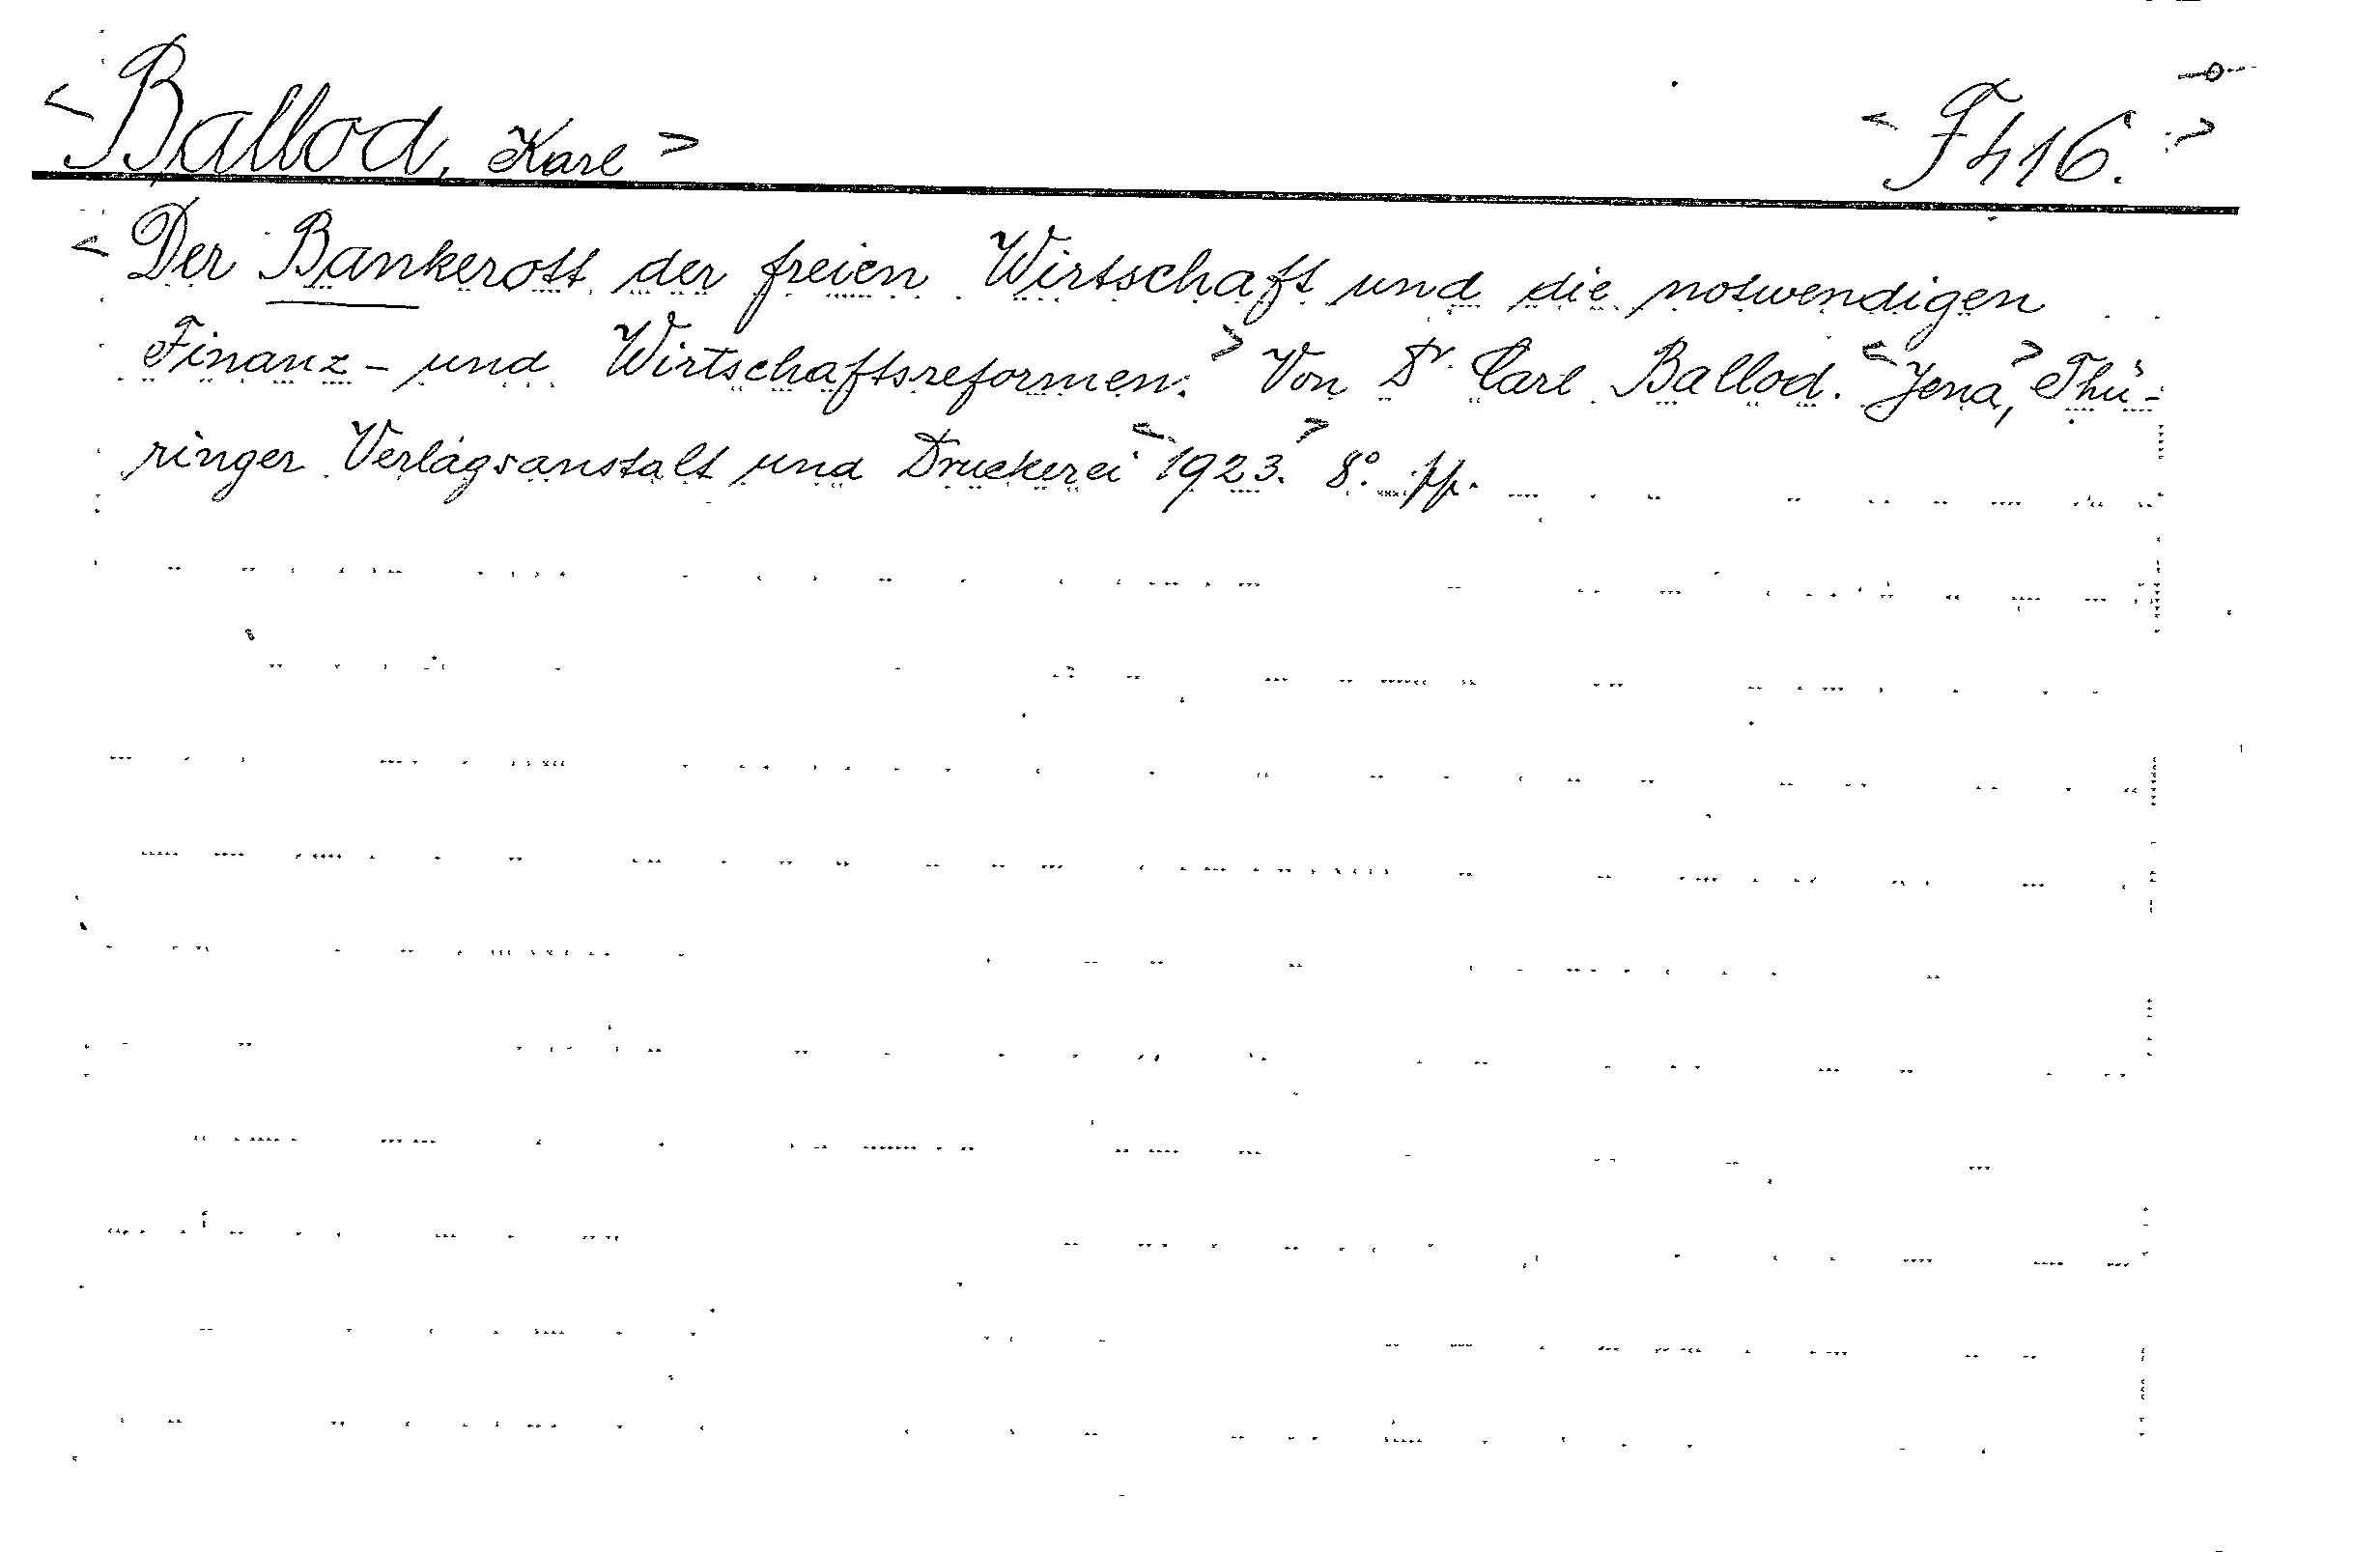 <Ballod, Karl> <F 416.>
<Der Bankerott der freien Wirtschaft und die notwendigen
Finanz- und Wirtschaftsreformen.> Von Dr. Carl Ballod. <Jena,> Thü-
ringer Verlagsanstalt und Druckerei <1923.> 8°. pp.